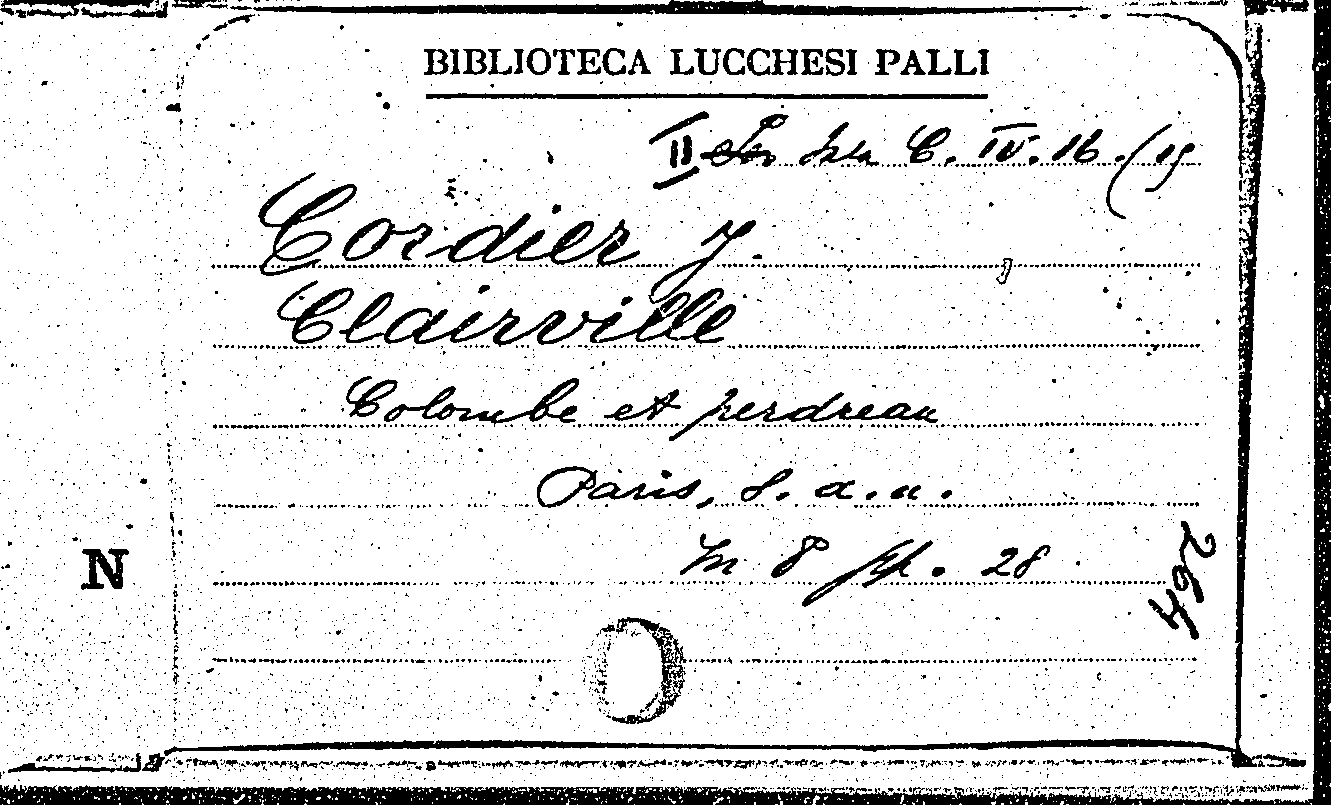 BIBLIOTECA LUCCHESI PALLI
II C. IV. 16. (15
Cordier J.
Clairville
Colombe et perdreau
Paris, s. a. n.
In 8 pp. 28
264
N